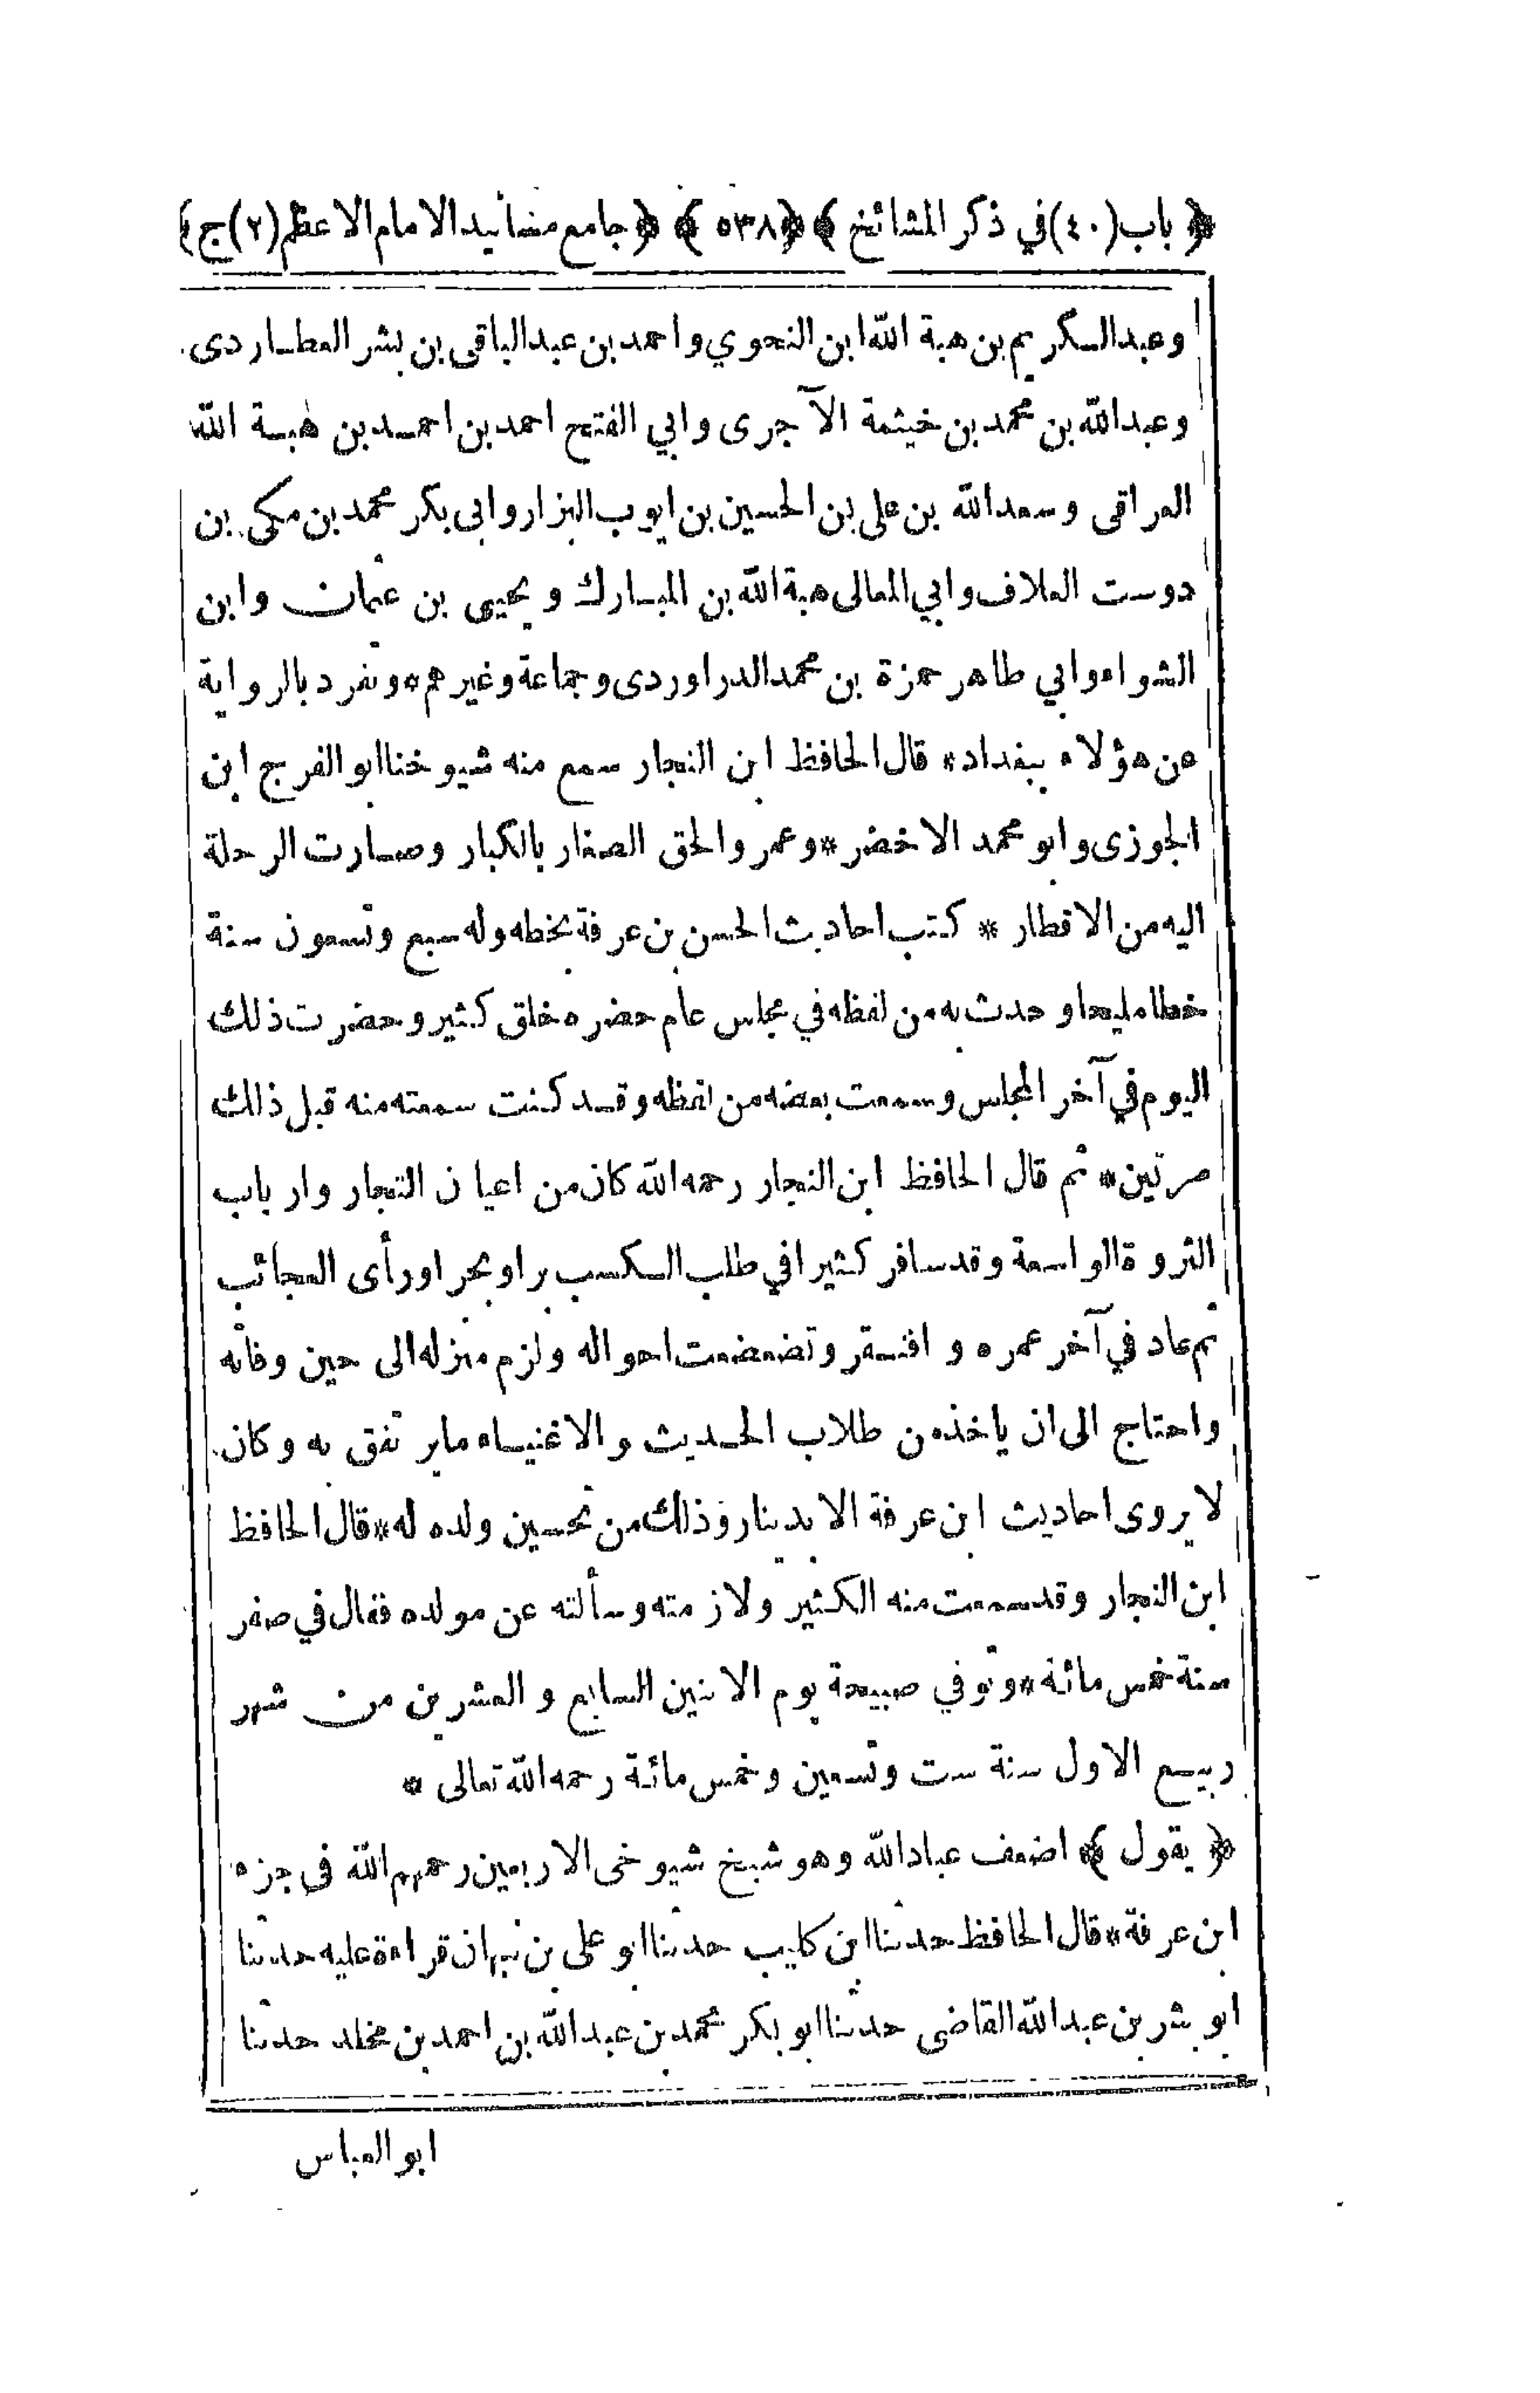 ﴿ باب (٤٠) في ذكر المشائخ ﴾ ﴿ ٥٣٨ ﴾ ﴿ جامع مسانيد الامام الاعظم (٢) ج ﴾
وعبد الكريم بن هبة الله ابن النحوي واحمد بن عبد الباقى بن بشر العطاردى
وعبد الله بن محمد بن خيثمة الآجرى وابي الفتح احمد بن احمد بن هبة الله
العراقى وسعد الله بن على بن الحسين بن ايوب البزار وابي بكر محمد بن مكى بن
دوست العلاف وابي المعالى هبة الله بن المبارك ويحيى بن عثمان وابن
الشواء وابي طاهر حمزة بن محمد الدراوردى وجماعة وغيرهم * وتفرد بالرواية
عن هؤلاء ببغداد * قال الحافظ ابن النجار سمع منه شيوخنا ابو الفرج ابن
الجوزى وابو محمد الاخضر * وعمر والحق الصغار بالكبار وصارت الرحلة
اليه من الاقطار * كتب احاديث الحسن بن عرفة بخطه وله سبع وتسعون سنة
خطا مليحا وحدث به من لفظه في مجلس عام حضره خلق كثير وحضرت ذلك
اليوم في آخر المجلس وسمعت بعضه من لفظه وقد كنت سمعته منه قبل ذلك
مرتين * ثم قال الحافظ ابن النجار رحمه الله كان من اعيان التجار وارباب
الثروة الواسعة وقد سافر كثيرا في طلب الكسب برا وبحرا ورأى العجائب
ثم عاد في آخر عمره و افتقر وتضعضعت احواله ولزم منزله الى حين وفاته
واحتاج الى ان ياخذ من طلاب الحديث والاغنياء ما يرتفق به وكان
لا يروى احاديث ابن عرفة الا بدينار وذلك من تحسين ولده له * قال الحافظ
ابن النجار وقد سمعت منه الكثير ولازمته وسألته عن مولده فقال في صفر
سنة خمس مائة * وتوفي صبيحة يوم الاثنين السابع والعشرين من شهر
ربيع الاول سنة ست وتسعين وخمس مائة رحمه الله تعالى *
﴿ يقول ﴾ اضعف عباد الله وهو شيخ شيوخى الاربعين رحمهم الله فى جزء
ابن عرفة * قال الحافظ حدثنا ابن كليب حدثنا ابو على بن نبهان قراءة عليه حدثنا
ابو بشر بن عبد الله القاضى حدثنا ابو بكر محمد بن عبد الله بن احمد بن مخلد حدثنا
ابو العباس